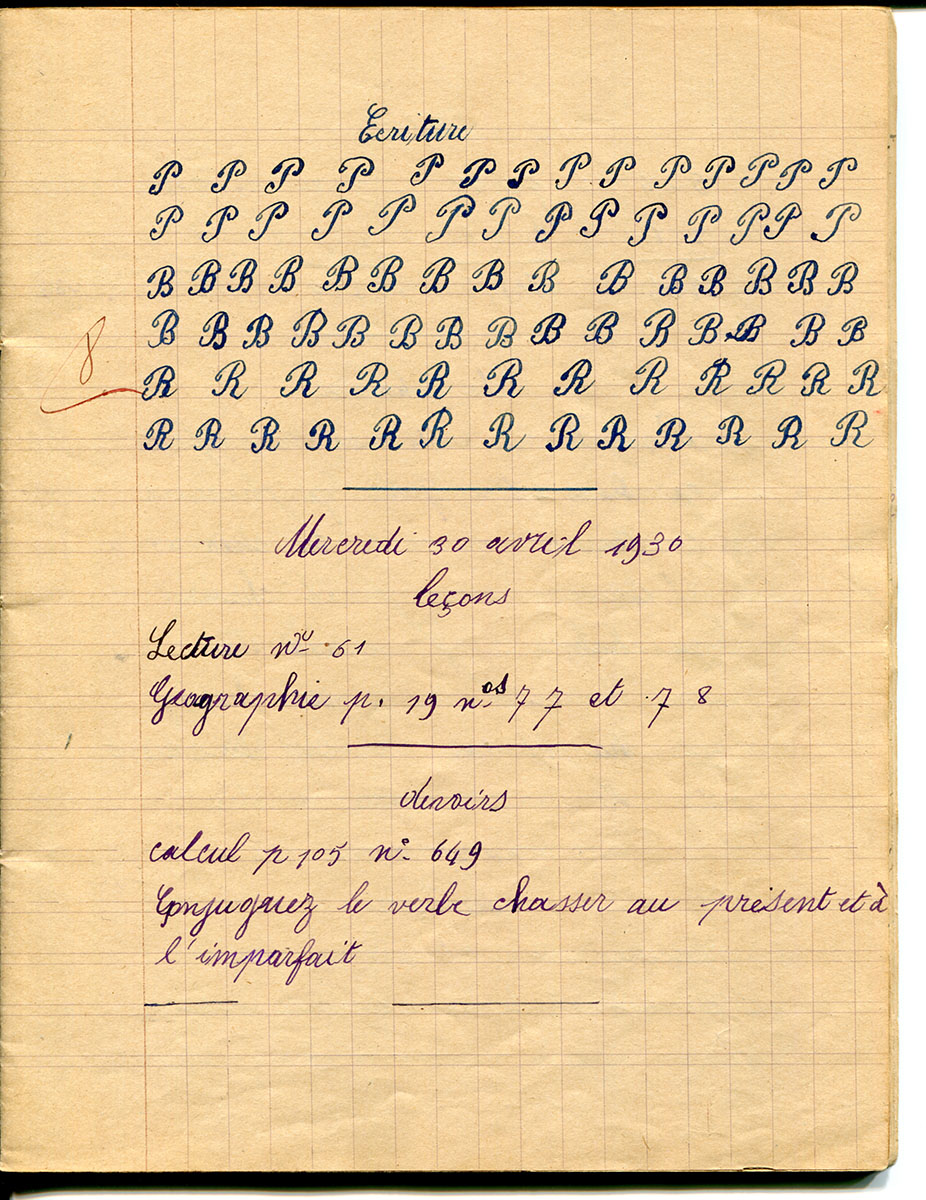 Ecriture
P P P P P P P P P P P P P P
P P P P P P P P P P P P P P
B B B B B B B B B B B B B B B
B B B B B B B B B B B B B B B
8
R R R R R R R R R R R R
R R R R R R R R R R R R R
Mercredi 30 avril 1930
leçons
Lecture n° 61
Géographie p. 19 nos 77 et 78
devoirs
calcul p 105 n° 649
Conjuguez le verbe chasser au présent et à
l'imparfait